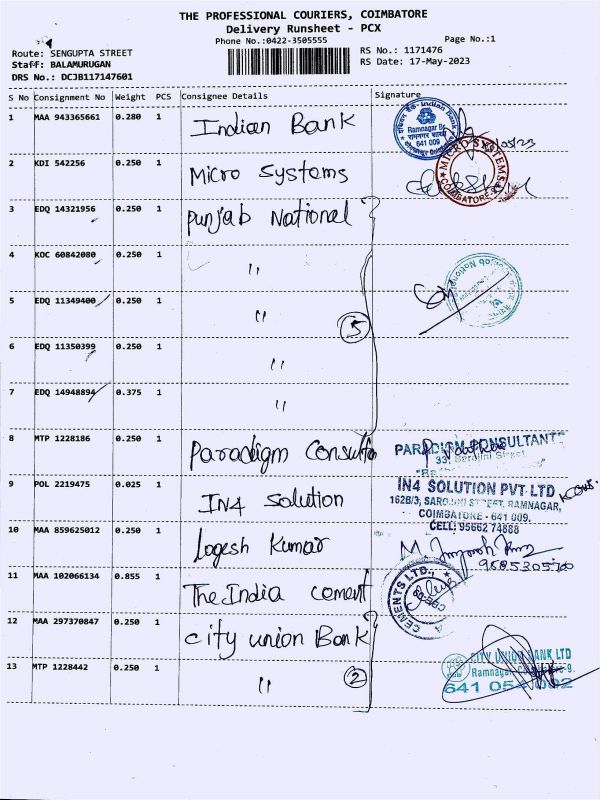 THE PROFESSIONAL COURIERS, COIMBATORE
Delivery Runsheet - PCX
Phone No.:0422-3505555 Page No.:1
Route: SENGUPTA STREET RS No.: 1171476
Staff: BALAMURUGAN RS Date: 17-May-2023
DRS No.: DCJB117147601
S No Consignment No Weight PCS Consignee Details Signature
1 MAA 943365661 0.280 1 Indian Bank
Indian Bank
Ramnagar Br.
641 009
2 KDI 542256 0.250 1 Micro Systems
MICRO SYSTEMS
COIMBATORE
3 EDQ 14321956 0.250 1 Punjab National
4 KOC 60842080 0.250 1 "
Punjab National
5 EDQ 11349400 0.250 1 "
5
6 EDQ 11350399 0.250 1 "
7 EDQ 14948894 0.375 1 "
8 MTP 1228186 0.250 1 Paradigm Consulta
PARADIGM CONSULTANT
33, Sarojini Street
9 POL 2219475 0.025 1 IN4 Solution
IN4 SOLUTION PVT LTD
162B/3, SAROJINI STREET, RAMNAGAR,
COIMBATORE - 641 009.
CELL: 95662 74888
10 MAA 859625012 0.250 1 Logesh Kumar
11 MAA 102066134 0.855 1 The India cement
CEMENTS LTD.,
12 MAA 297370847 0.250 1 City union Bank
13 MTP 1228442 0.250 1 "
2
CITY UNION BANK LTD
Ramnagar